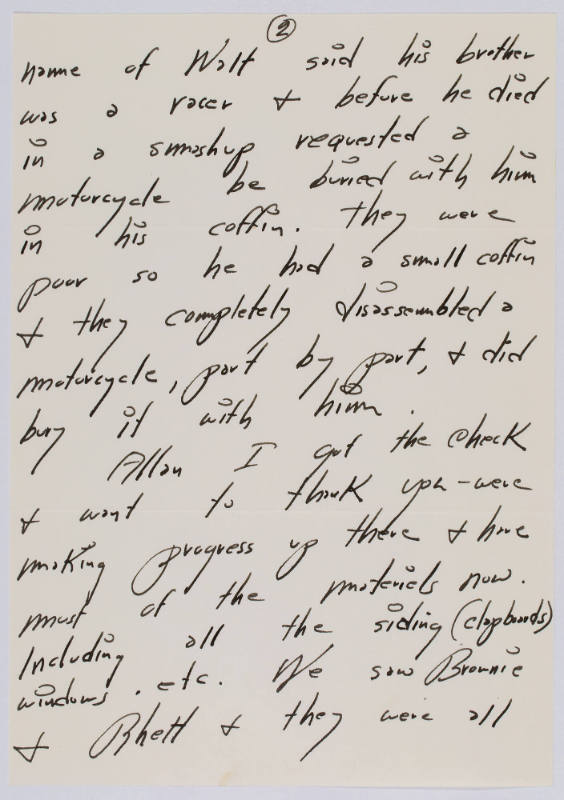 2
name of Walt said his brother
was a racer & before he died
in a smashup requested a
motorcycle be buried with him
in his coffin. They were
poor so he had a small coffin
& they completely disassembled a
motorcycle, part by part, & did
bury it with him.
Allan I got the check
& want to thank you - were
making progress up there & have
most of the materials now.
Including all the siding (clapboards)
windows. etc. We saw Brownie
& Rhett & they were all